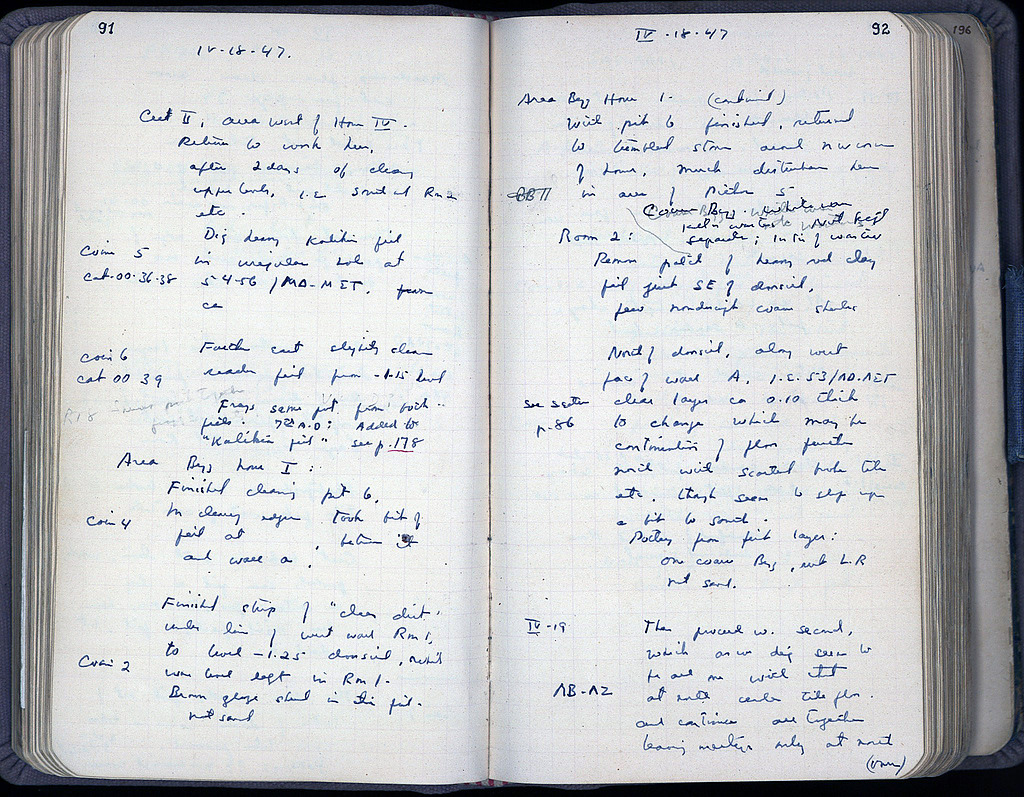 91
IV-18-47.
Cut II, area west of House IV.
Return to work here,
after 2 days of cleaning
upper levels, i.e. south of Rm 2
etc.
Dig heavy Kalikin fill
in irregular hole at
Coin 5
cat.00.36-38
5-4-56/MA-MET.
ca
Further east slightly clean
Coin 6
cat 00 39
fill from -1.15 level
Frags same pot from both
fills. AD: Added to
"Kalikin fill" see p.178
Area Byz house I:
Finished cleaning pit 6,
In cleaning edges took bit of
Coin 4
fill at between it
and wall a.
Finished strip of "clean dirt"
under line of west wall Rm 1,
to level -1.25 which
Coin 2
was level kept in Rm 1.
Brown glaze sherd in this fill.
not saved
92
196
IV-18-47
Area Byz House 1- (continued)
With pit 6 finished, returned
to tumbled stone around NW corner
of house, much disturbance here
BB 11
in area of Pithos 5
Coarse Byz.
Not kept
separate; in tin of
Room 2:
Remove patch of heavy red clay
fill just SE of
few nondescript coarse sherds
North of along west
face of wall A, i.e. 53/AD.AET
see section
p.86
clear layer ca 0.10 thick
to change which may be
continuation of floor further
north with scattered broken tile
etc. though seems to slope up
a bit to south.
Pottery from first layer:
one coarse Byz, not L.R
not saved.
IV-19
Then proceed w. second,
which as we dig seems to
be all one with that
AB-AZ
at north under tile floor.
and continue all together
leaving markers only at north
(over)